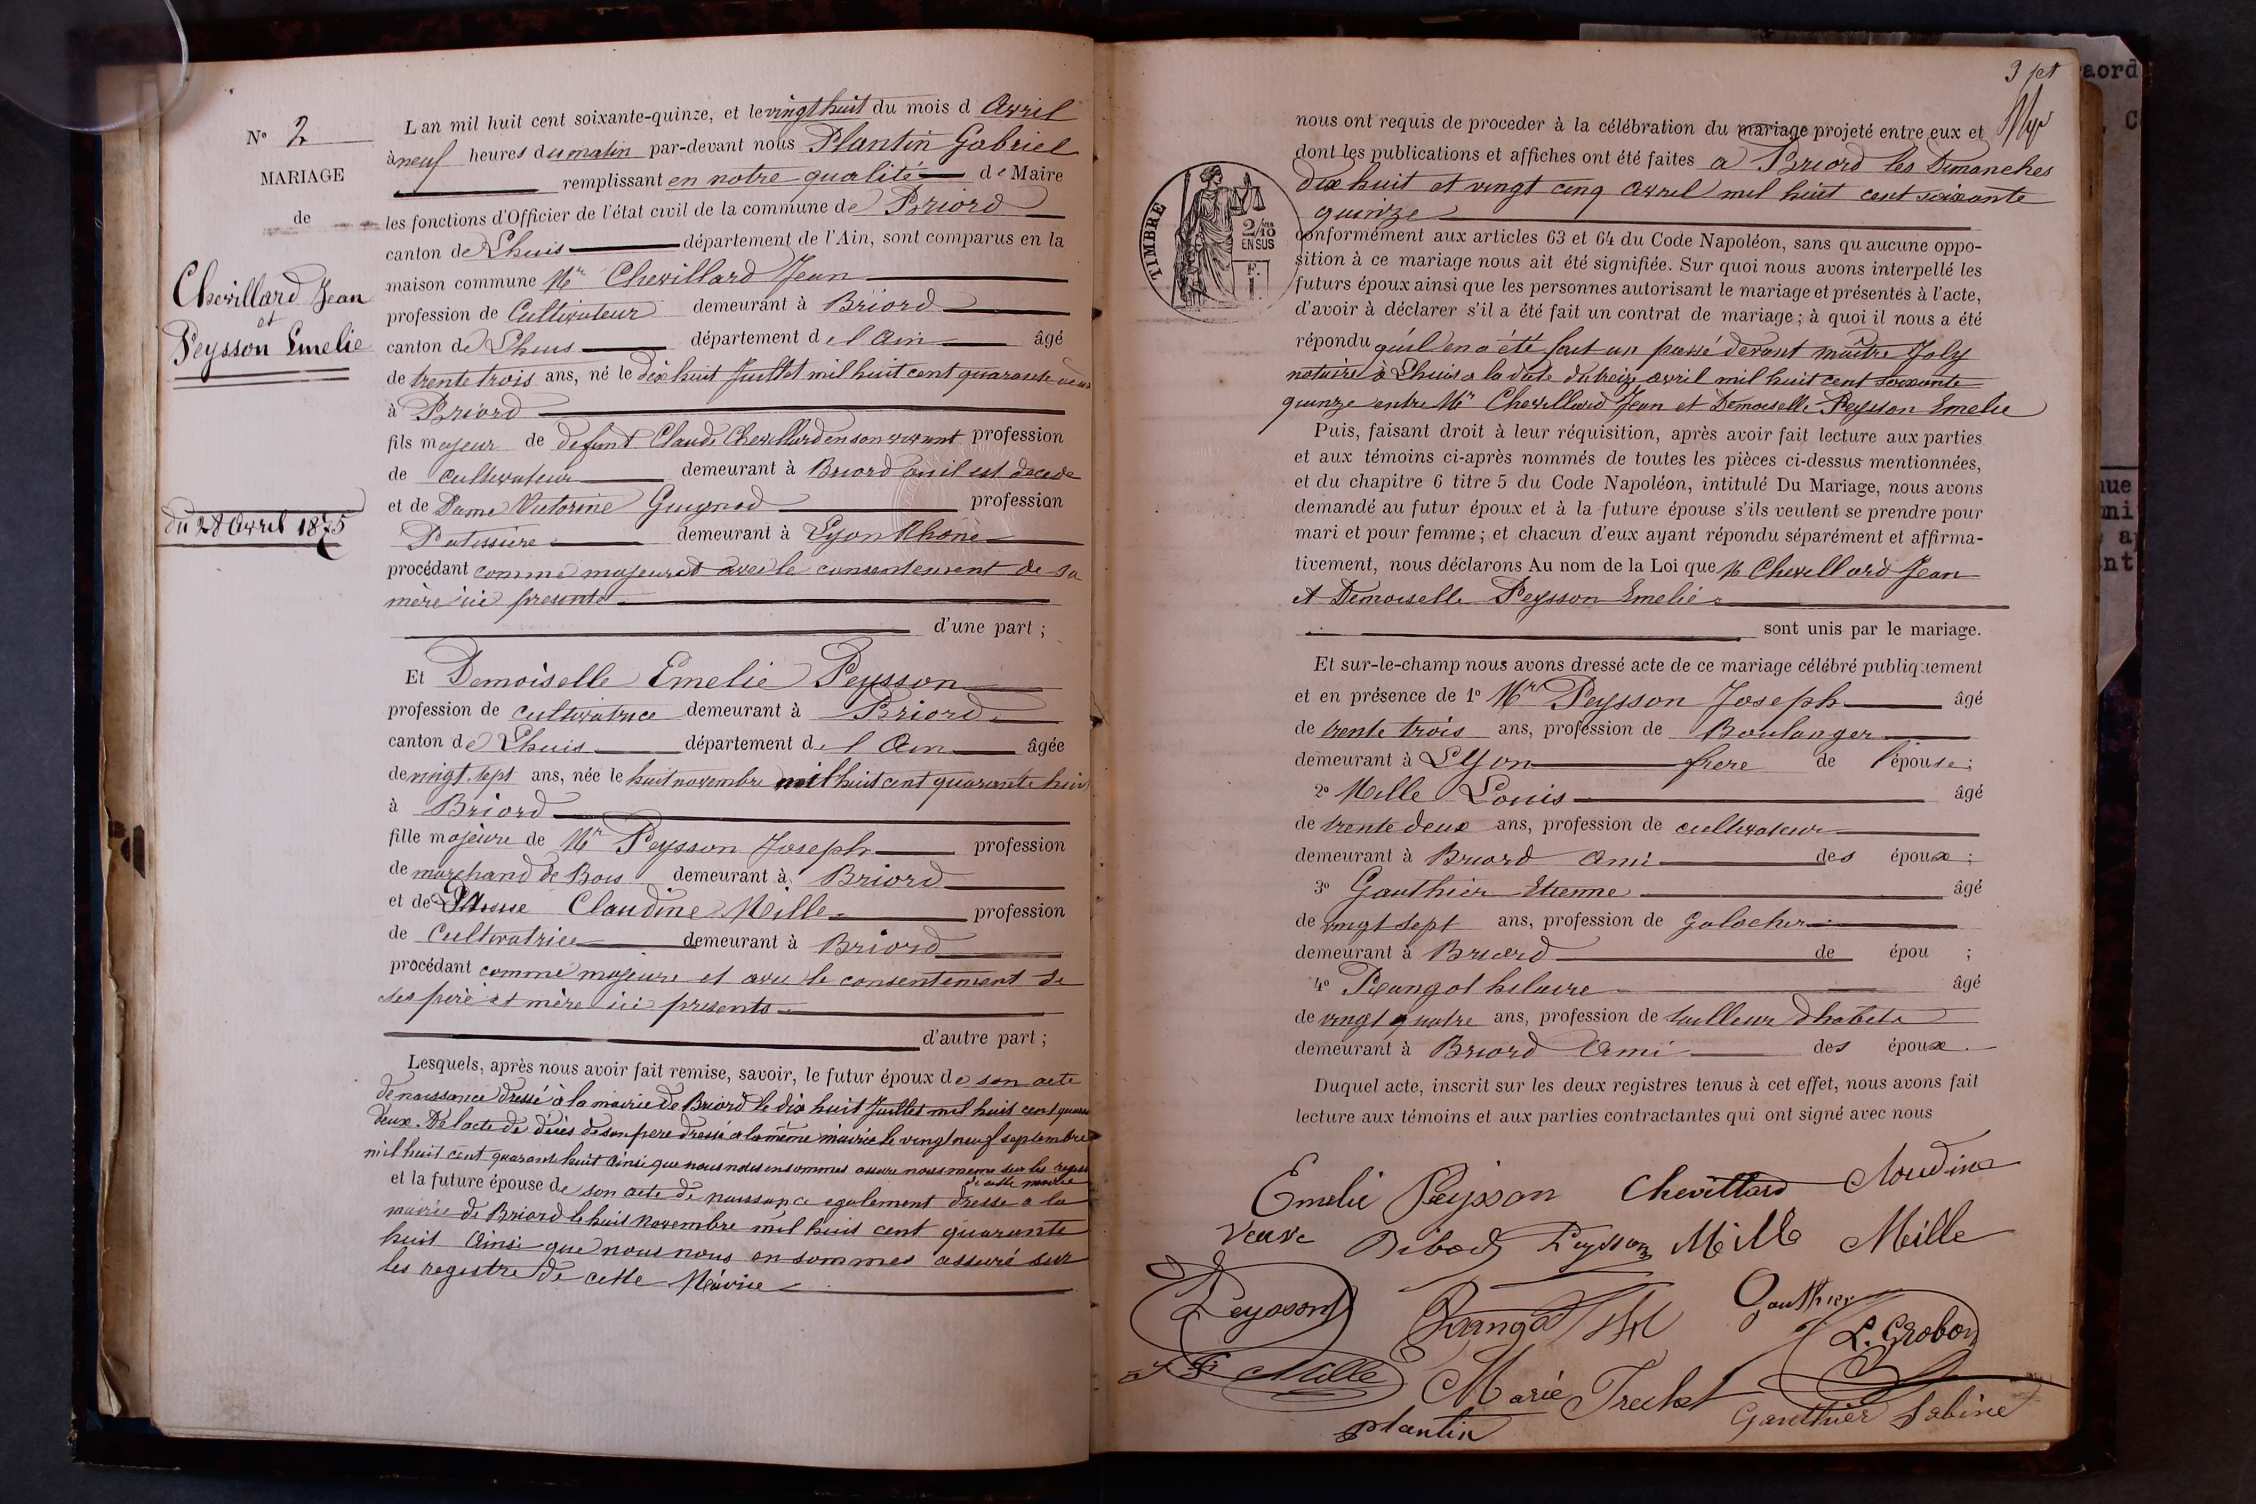 N° 2
MARIAGE
de
Chevillard Jean
et
Peysson Emelie
du 28 Avril 1875
L an mil huit cent soixante-quinze, et le vingt huit du mois d Avril
à neuf heures du matin par-devant nous Plantin Gabriel
remplissant en notre qualité de Maire
les fonctions d'Officier de l'état civil de la commune de Briord
canton de Lhuis département de l'Ain, sont comparus en la
maison commune Mr Chevillard Jean
profession de Cultivateur demeurant à Briord
canton de Lhuis département de l Ain âgé
de trente trois ans, né le dix huit Juillet mil huit cent quarante deux
à Briord
fils majeur de defunt Claude Chevillard en son vivant profession
de cultivateur demeurant à Briord ou il est decede
et de Dame Victorine Guignod profession
Patissière demeurant à Lyon Rhône
procédant comme majeur et avec le consentement de sa
mère ici presente
d'une part ;
Et Demoiselle Emelie Peysson
profession de cultivatrice demeurant à Briord
canton de Lhuis département de l Ain âgée
de vingt sept ans, née le huit novembre mil huit cent quarante huit
à Briord
fille majeure de Mr Peysson Joseph profession
de marchand de Bois demeurant à Briord
et de Claudine Mille profession
de Cultivatrice demeurant à Briord
procédant comme majeure et avec le consentement de
ses père et mère ici presents
d'autre part ;
Lesquels, après nous avoir fait remise, savoir, le futur époux de son acte
de naissance dressé à la mairie de Briord le dix huit Juillet mil huit cent quarante
deux. De l acte de décès de son pere dressé a la même mairie le vingt neuf septembre
mil huit cent quarante huit Ainsi que nous nous en sommes assuré nous meme sur les
de cette mairie
et la future épouse de son acte de naissance egalement dresse a la
mairie de Briord le huit Novembre mil huit cent quarante
huit Ainsi que nous nous en sommes assuré sur
les registre de cette Mairie
aord
3
nous ont requis de proceder à la célébration du mariage projeté entre eux et
dont les publications et affiches ont été faites a Briord les Dimanches
Dix huit et vingt cinq avril mil huit cent soixante
quinze
TIMBRE
2/10
EN SUS
F.
1.
conformément aux articles 63 et 64 du Code Napoléon, sans qu aucune oppo-
sition à ce mariage nous ait été signifiée. Sur quoi nous avons interpellé les
futurs époux ainsi que les personnes autorisant le mariage et présentes à l'acte,
d'avoir à déclarer s'il a été fait un contrat de mariage ; à quoi il nous a été
répondu qu'il en a été fait un passé devant maître Joly
notaire à Lhuis a la date du treize avril mil huit cent soixante
quinze entre Mr Chevillard Jean et Demoiselle Peysson Emelie
Puis, faisant droit à leur réquisition, après avoir fait lecture aux parties
et aux témoins ci-après nommés de toutes les pièces ci-dessus mentionnées,
et du chapitre 6 titre 5 du Code Napoléon, intitulé Du Mariage, nous avons
demandé au futur époux et à la future épouse s'ils veulent se prendre pour
mari et pour femme ; et chacun d'eux ayant répondu séparément et affirma-
tivement, nous déclarons Au nom de la Loi que M Chevillard Jean
et Demoiselle Peysson Emelie
sont unis par le mariage.
Et sur-le-champ nous avons dressé acte de ce mariage célébré publiquement
et en présence de 1° Mr Peysson Joseph âgé
de trente trois ans, profession de Boulanger
demeurant à Lyon frere de l'épouse ;
2° Mille Louis âgé
de trente deux ans, profession de cultivateur
demeurant à Briord Ami des époux ;
3° Gauthier Etienne âgé
de vingt sept ans, profession de Galocher
demeurant à Briord de épou ;
4° Rangot hilaire âgé
de vingt quatre ans, profession de tailleur dhabits
demeurant à Briord Ami des époux
Duquel acte, inscrit sur les deux registres tenus à cet effet, nous avons fait
lecture aux témoins et aux parties contractantes qui ont signé avec nous
Emelie Peysson Chevillard
Veuve Peysson Mille Mille
Peysson Rangot Gauthier
L. Grobon
Mille Marie Trechet
Plantin Gauthier Sabine